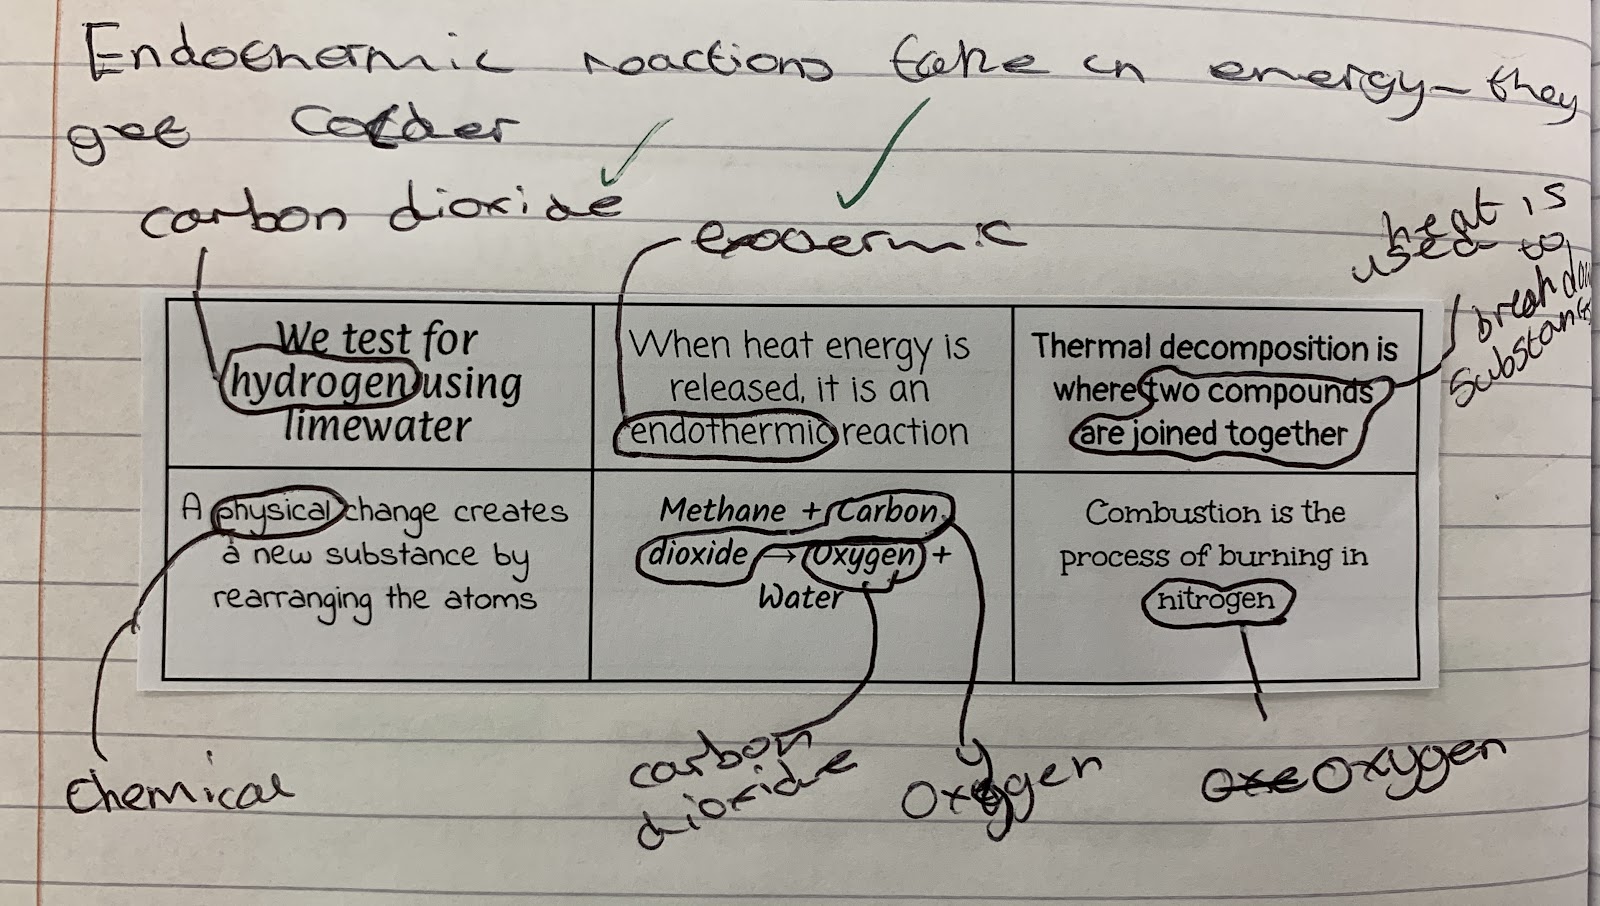 Endothermic reactions take in energy - they
get colder
carbon dioxide
exothermic
heat is
used to
break down
substances
We test for
hydrogen using
limewater
When heat energy is
released, it is an
endothermic reaction
Thermal decomposition is
where two compounds
are joined together
A physical change creates
a new substance by
rearranging the atoms
Methane + Carbon
dioxide → Oxygen +
Water
Combustion is the
process of burning in
nitrogen
chemical
carbon
dioxide
oxygen
oxe oxygen